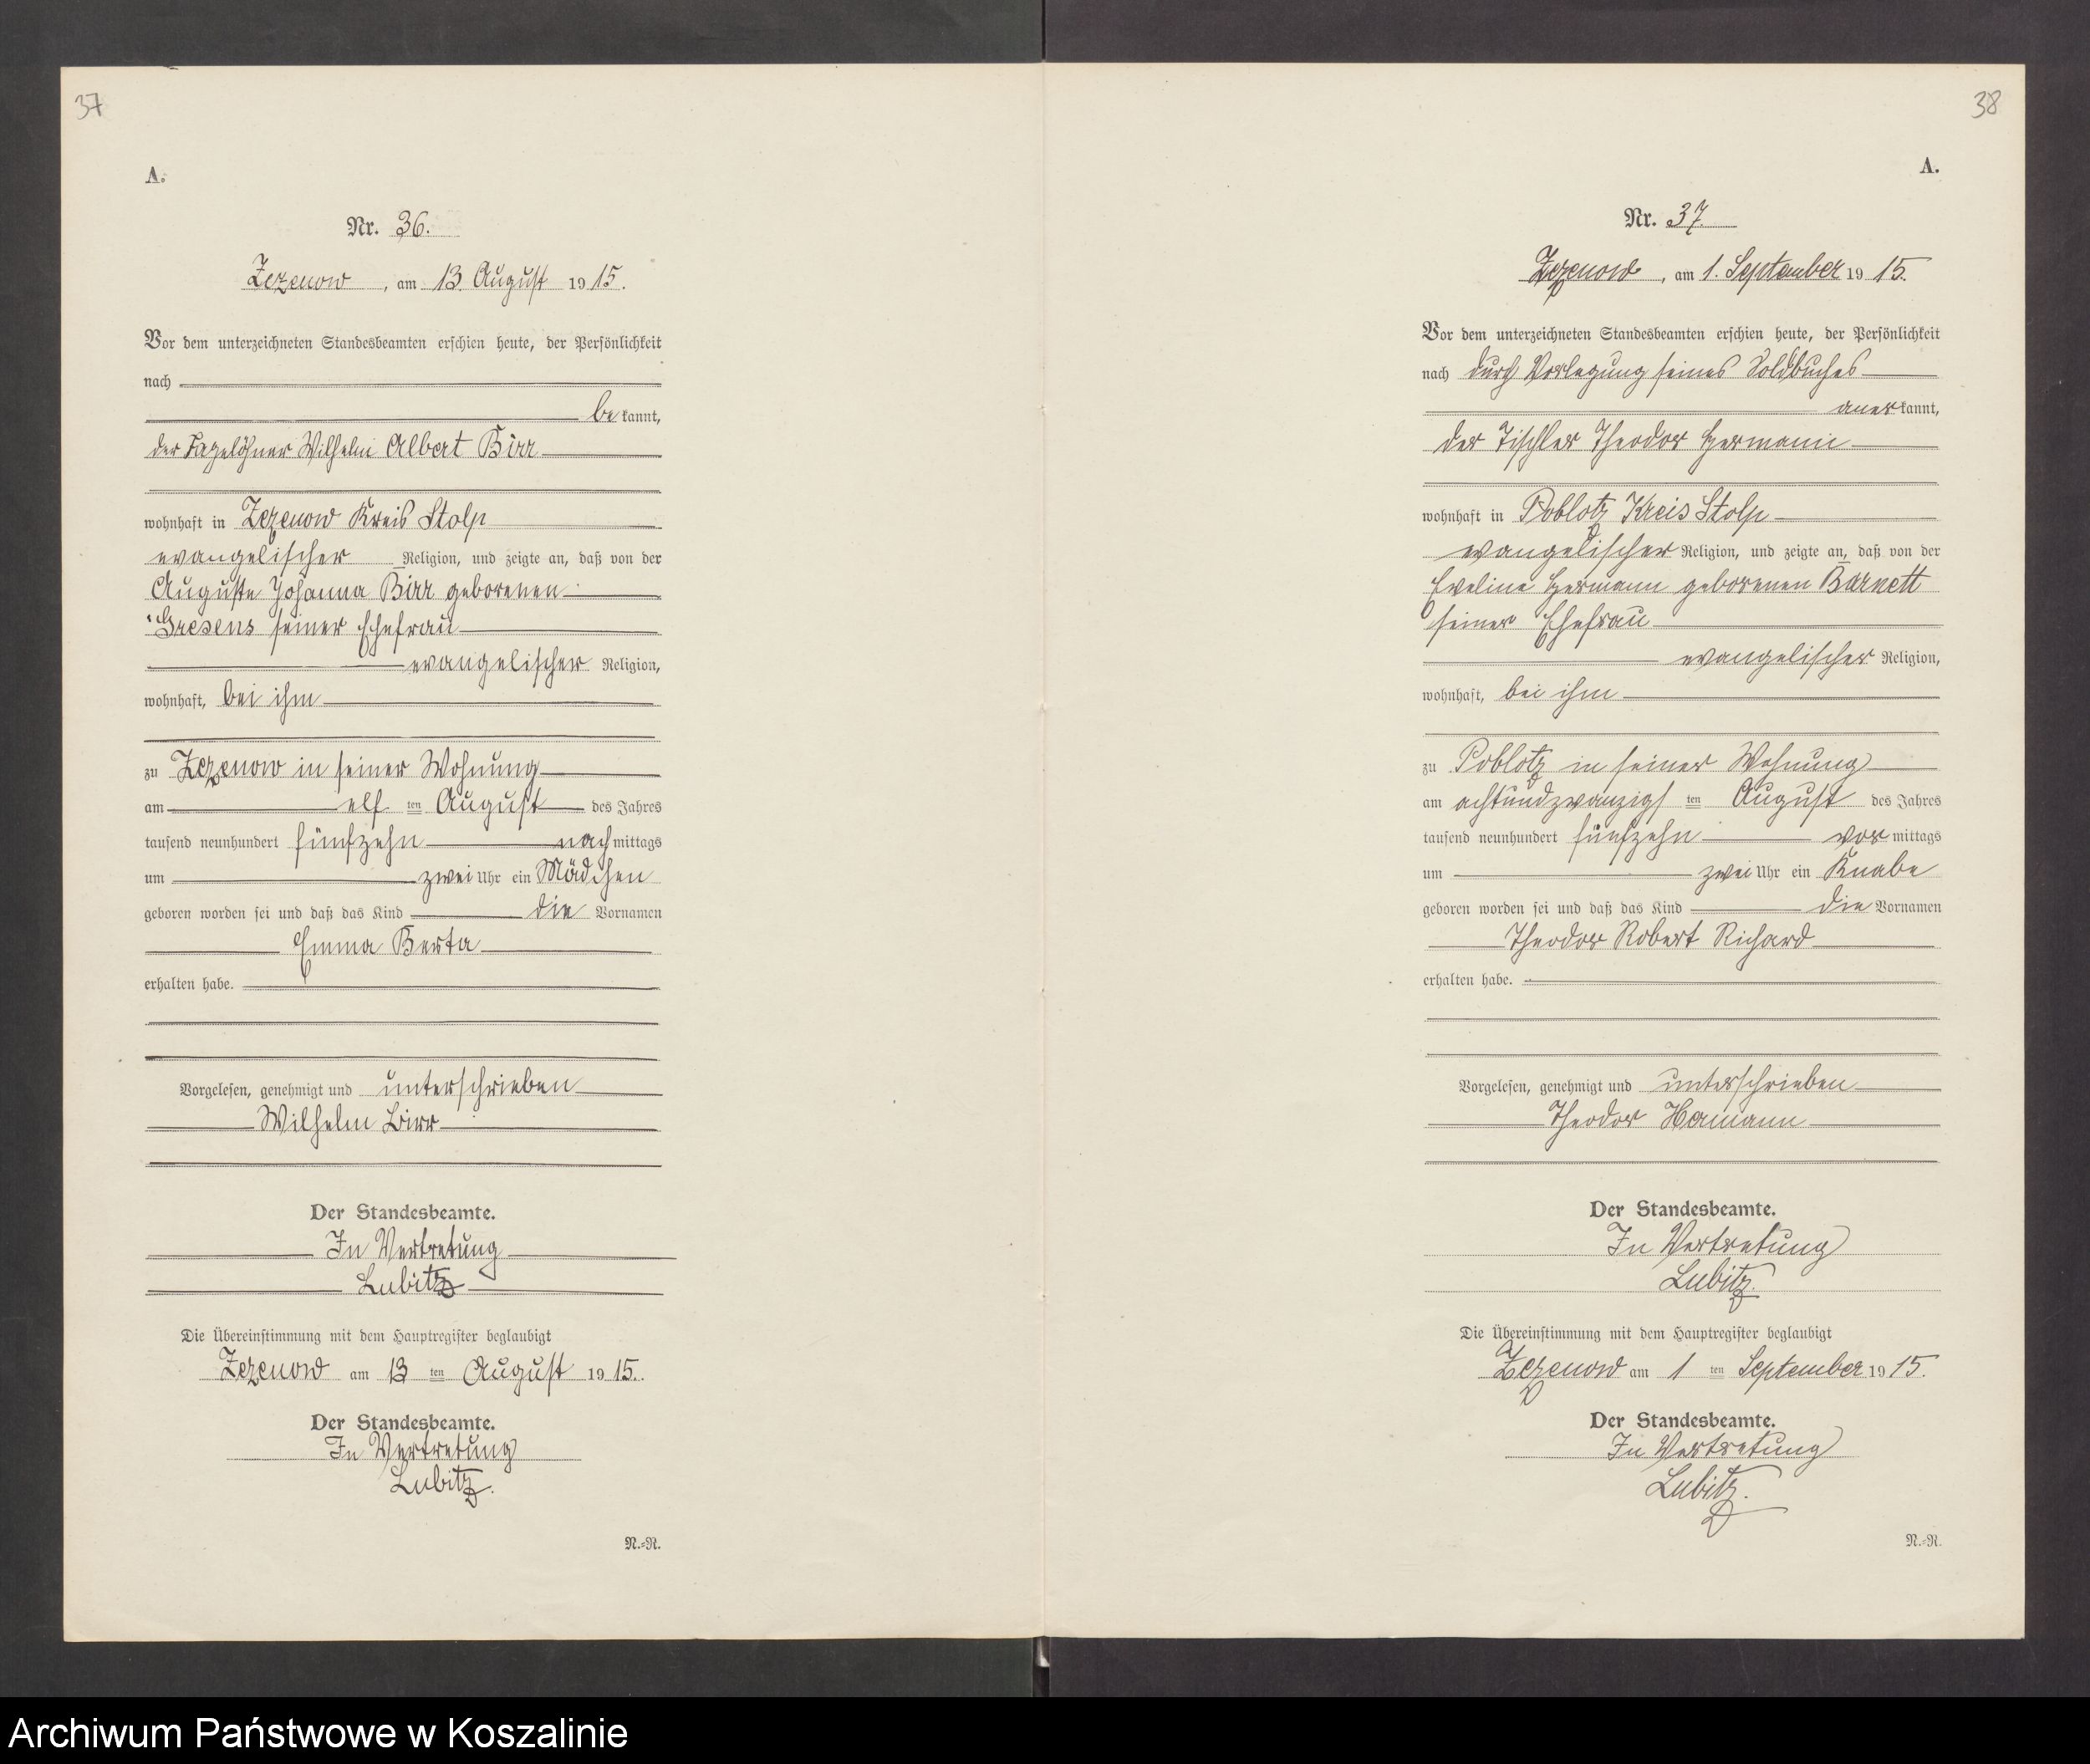 37
A.
Nr. 36.
Zezenow, am 13 August 1915.
Vor dem unterzeichneten Standesbeamten erschien heute, der Persönlichkeit
nach
bekannt,
der Tagelöhner Wilhelm Albert Birr
wohnhaft in Zezenow Kreis Stolp
evangelischer Religion, und zeigte an, daß von der
Auguste Johanna Birr geborenen
Gresens seiner Ehefrau
evangelischer Religion,
wohnhaft, bei ihm
zu Zezenow in seiner Wohnung
am elf ten August des Jahres
tausend neunhundert fünfzehn nachmittags
um zwei Uhr ein Mädchen
geboren worden sei und daß das Kind die Vornamen
Emma Berta
erhalten habe.
Vorgelesen, genehmigt und unterschrieben
Wilhelm Birr
Der Standesbeamte.
In Vertretung
Lubitz
Die Übereinstimmung mit dem Hauptregister beglaubigt
Zezenow am 13 ten August 1915.
Der Standesbeamte.
In Vertretung
Lubitz.
N.=R.
38
A.
Nr. 37.
Zezenow, am 1. September 1915.
Vor dem unterzeichneten Standesbeamten erschien heute, der Persönlichkeit
nach durch Vorlegung seines Soldbuches
anerkannt,
der Tischler Theodor Hermann
wohnhaft in Poblotz Kreis Stolp
evangelischer Religion, und zeigte an, daß von der
Eveline Hermann geborenen Barnett
seiner Ehefrau
evangelischer Religion,
wohnhaft, bei ihm
zu Poblotz in seiner Wohnung
am achtundzwanzigs ten August des Jahres
tausend neunhundert fünfzehn vormittags
um zwei Uhr ein Knabe
geboren worden sei und daß das Kind die Vornamen
Theodor Robert Richard
erhalten habe.
Vorgelesen, genehmigt und unterschrieben
Theodor Hermann
Der Standesbeamte.
In Vertretung
Lubitz.
Die Übereinstimmung mit dem Hauptregister beglaubigt
Zezenow am 1 ten September 1915.
Der Standesbeamte.
In Vertretung
Lubitz.
N.=R.
Archiwum Państwowe w Koszalinie